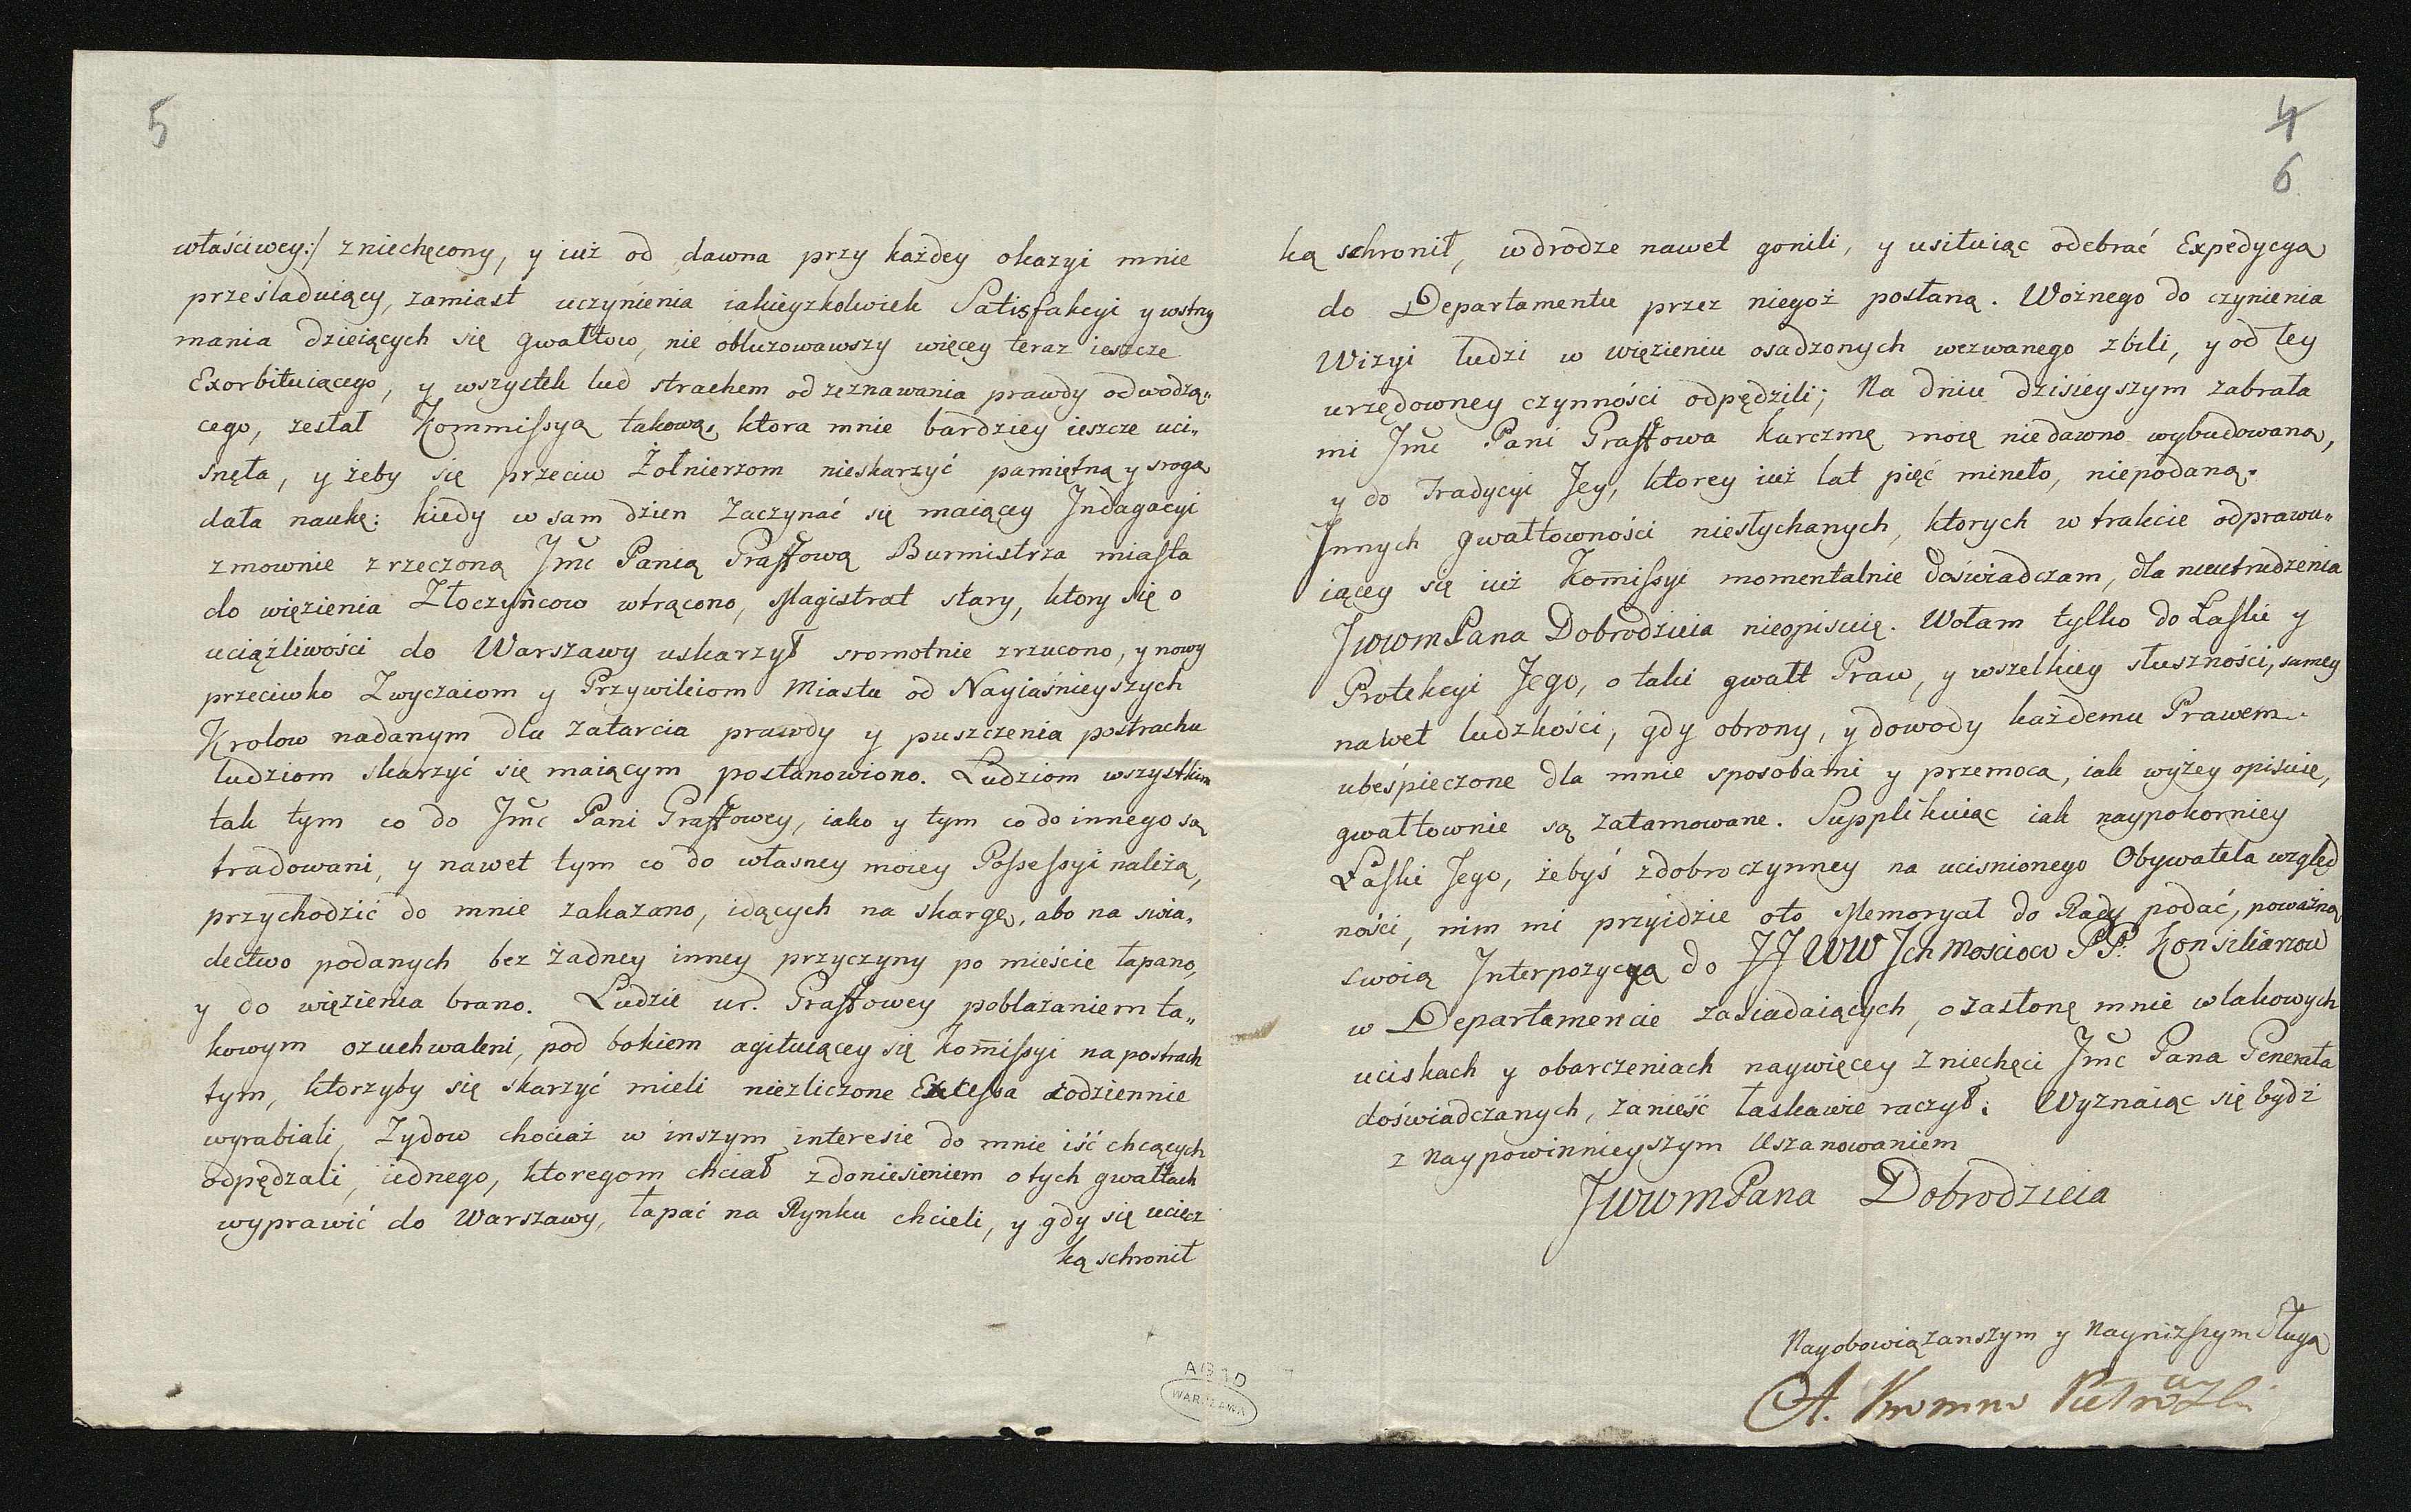 5
właściwey:/ zniechęcony, y iuż od dawna przy każdey okazyi mnie
prześladuiący, zamiast uczynienia iakieyzkolwiek Satisfakcyi y wstrzy
mania dzieiących się gwałtow, nie obluzowawszy więcey teraz ieszcze
Exorbituiącego, y wszystek lud strachem od zeznawania prawdy odwodzą„
cego, zesłał Kommissyą takową, ktora mnie bardziey ieszcze uci„
snęła, y żeby się przeciw Żołnierzom nieskarzyć pamiętną y srogą
dała naukę: kiedy w sam dzien zaczynać się maiącey Indagacyi
zmownie z rzeczoną Jmć Panią Graffową Burmistrza miasta
do więzienia Złoczyńcow wtrącono, Magistrat stary, ktory się o
uciążliwości do Warszawy uskarzył sromotnie zrzucono, y nowy
przeciwko Zwyczaiom y Przywileiom Miastu od Nayiaśnieyszych
Krolow nadanym dla zatarcia prawdy y puszczenia postrachu
ludziom skarzyć się maiącym postanowiono. Ludziom wszystkim
tak tym co do Jmć Pani Graffowey, iako y tym co do innego są
tradowani, y nawet tym co do własney moiey Possessyi należą,
przychodzić do mnie zakazano, idących na skargę, abo na swia„
dectwo podanych bez żadney inney przyczyny po mieście łapano,
y do więzienia brano. Ludzie ur. Graffowey pobłażaniem ta„
kowym ozuchwaleni, pod bokiem agituiącey się Kom̄issyi na postrach
tym, ktorzyby się skarzyć mieli niezliczone Excessa codziennie
wyrabiali, Zydow chociaż w inszym interesie do mnie iść chcących
odpędzali, iednego, ktoregom chciał z doniesieniem o tych gwałtach
wyprawić do Warszawy, łapać na Rynku chcieli, y gdy się uciecz
ką schronił
AGAD
WARSZAWA
4
6
ką schronił, w drodze nawet gonili, y usiłuiąc odebrać Expedycyą
do Departamentu przez niegoż posłaną. Woźnego do czynienia
Wizyi ludzi w więzieniu osadzonych wezwanego zbili, y od tey
urzędowney czynności odpędzili; Na dniu dzisieyszym zabrała
mi Jmć Pani Graffowa karczmę moię niedawno wybudowaną,
y do Tradycyi Jey, ktorey iuż lat pięć mineło, niepodaną.
Innych gwałtowności niesłychanych, ktorych w trakcie odprawu„
iącey się iuż Kom̄issyi momentalnie doświadczam, dla nieutrudzenia
JWWMPana Dobrodzieia nieopisuię. Wołam tylko do Łaski y
Protekcyi Jego, o taki gwałt Praw, y wszelkiey słuszności, samey
nawet ludzkości, gdy obrony, y dowody każdemu Prawem
ubeśpieczone dla mnie sposobami y przemocą, iak wyżey opisuię,
gwałtownie są zatamowane. Supplikuiąc iak naypokorniey
Łaski Jego, żebyś z dobroczynney na ucisnionego Obywatela względ
ności, nim mi przyidzie oto Memoryał do Rady podać, poważną
swoią Interpozycyą do JJWW Jch Mosciow PP. Konsiliarzow
w Departamencie zasiadaiących, o zasłonę mnie w takowych
uciskach y obarczeniach naywięcey z niechęci Jmć Pana Generała
doświadczanych, zanieść łaskawie raczył. Wyznaiąc się bydź
z naypowinnieyszym Uszanowaniem
JWWMPana Dobrodzieia
Nayobowiązanszym y Nayniższym Sługą